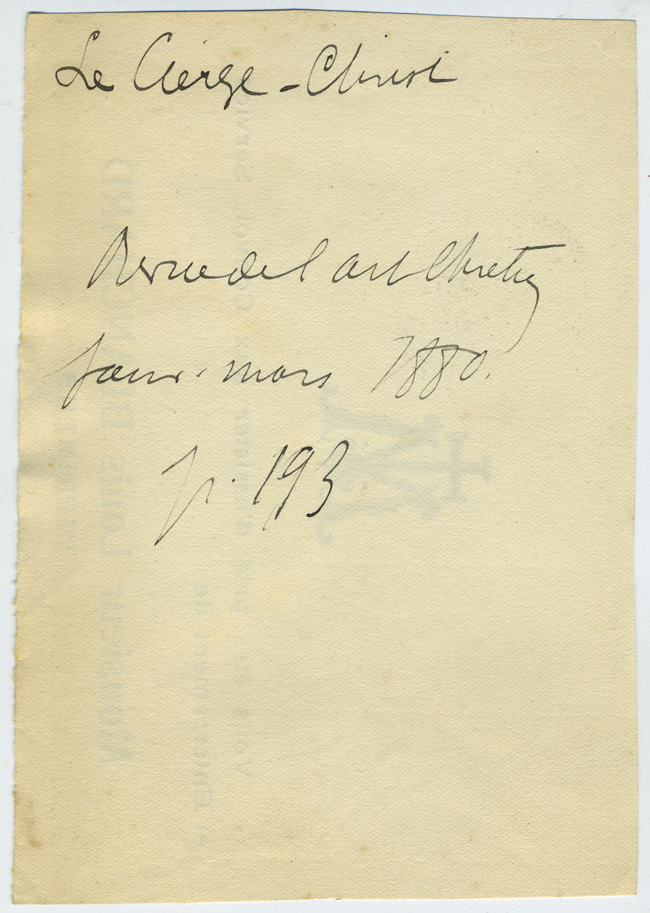 Le Cierge-Christ
Revue de l'art Chrétien
janv. mars 1880.
p. 193